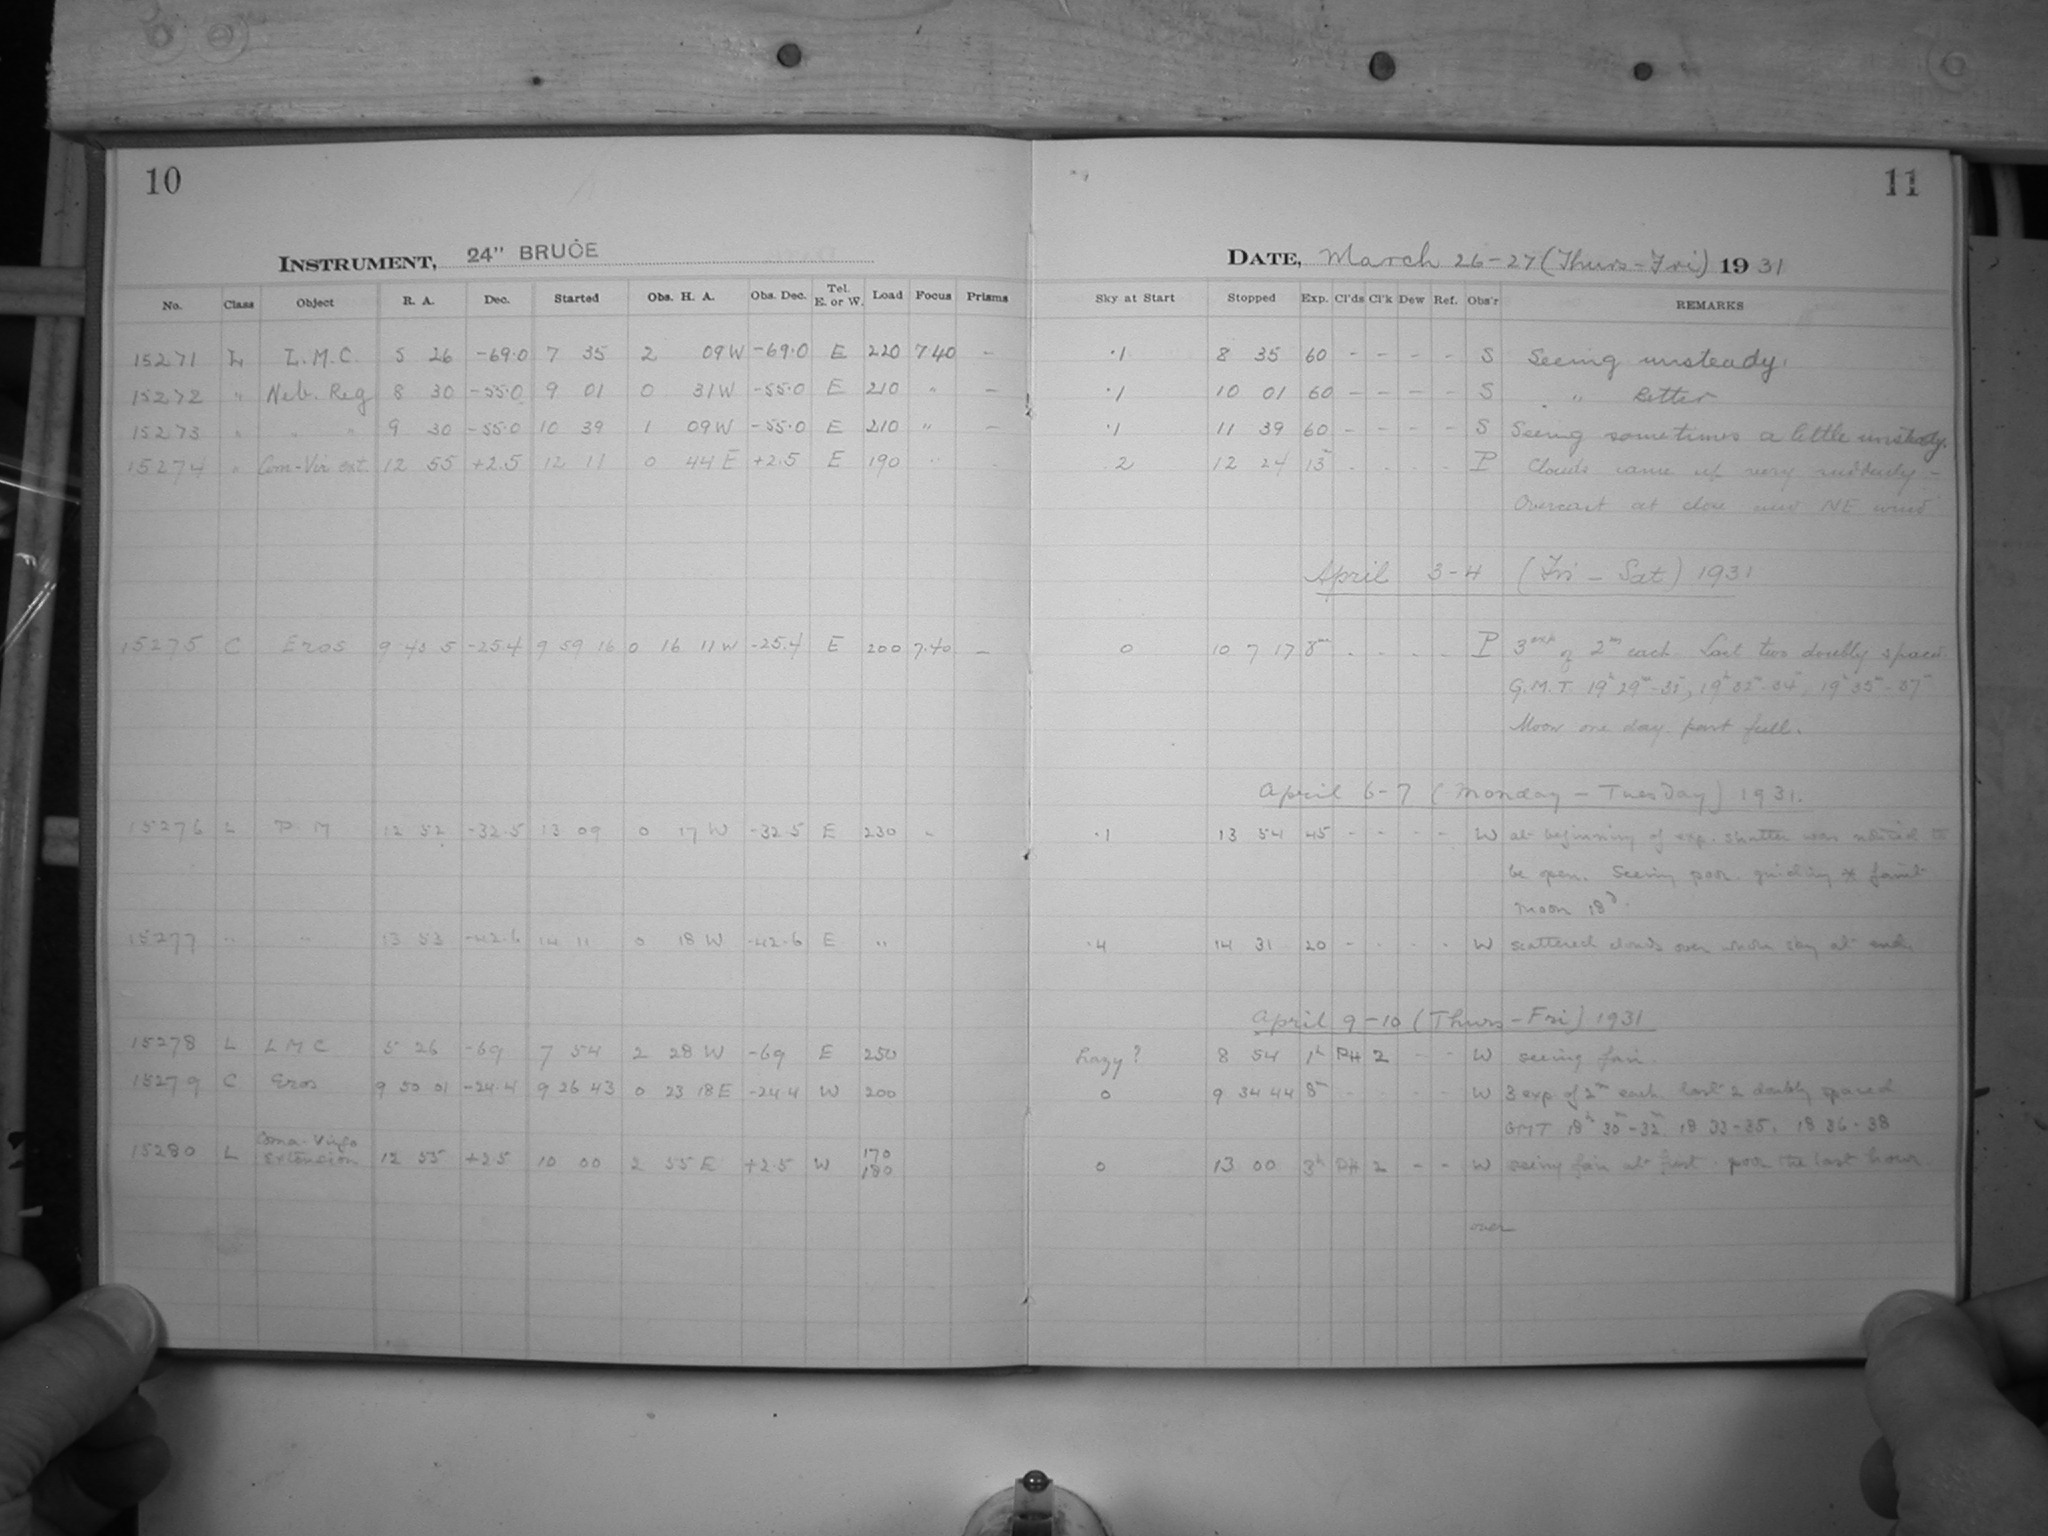 10
11
INSTRUMENT, 24" BRUCE
DATE, March 26-27 (Thurs-Fri) 1931
No. Class Object R. A. Dec. Started Obs. H. A. Obs. Dec. Tel. E. or W. Load Focus Prisms Sky at Start Stopped Exp. Cl'ds Cl'k Dew Ref. Obs'r REMARKS
15271 L L.M.C. 5 26 -69.0 7 35 2 09 W -69.0 E 220 7.40 - .1 8 35 60 - - - - S Seeing unsteady.
15272 " Neb. Reg 8 30 -55.0 9 01 0 31 W -55.0 E 210 " - .1 10 01 60 - - - - S " better
15273 " " " 9 30 -55.0 10 39 1 09 W -55.0 E 210 " - .1 11 39 60 - - - - S Seeing sometimes a little unsteady.
15274 " Com-Vir ext. 12 55 +2.5 12 11 0 44 E +2.5 E 190 " . .2 12 24 13 . . . . P Clouds came up very suddenly -
Overcast at close and NE wind
April 3-4 (Fri - Sat) 1931
15275 C Eros 9 43 5 -25.4 9 59 16 0 16 11 W -25.4 E 200 7.40 - 0 10 7 17 8m . . . . P 3 exp of 2m each. Last two doubly spaced
G.M.T. 19h 29m-31, 19h 32m-34, 19h 35m-37
Moon one day past full.
April 6-7 (Monday - Tuesday) 1931.
15276 L P. M 12 52 -32.5 13 09 0 17 W -32.5 E 230 " .1 13 54 45 - - - - W at beginning of exp. shutter was noticed to
be open. Seeing poor. guiding * faint
moon 18d.
15277 " " 13 53 -42.6 14 11 0 18 W -42.6 E " .4 14 31 20 - - - - W scattered clouds over whole sky at end.
April 9-10 (Thurs-Fri) 1931
15278 L L M C 5 26 -69 7 54 2 28 W -69 E 250 hazy? 8 54 1h PH 2 - - W seeing fair.
15279 C Eros 9 50 01 -24.4 9 26 43 0 23 18 E -24.4 W 200 0 9 34 44 8m - - - - W 3 exp of 2m each last 2 doubly spaced
GMT 18h 30m-32m. 18 33-35. 18 36-38
15280 L Coma-Virgo extension 12 55 +2.5 10 00 2 55 E +2.5 W 170 180 0 13 00 3h PH 2 - - W seeing fair at first. poor the last hour
over